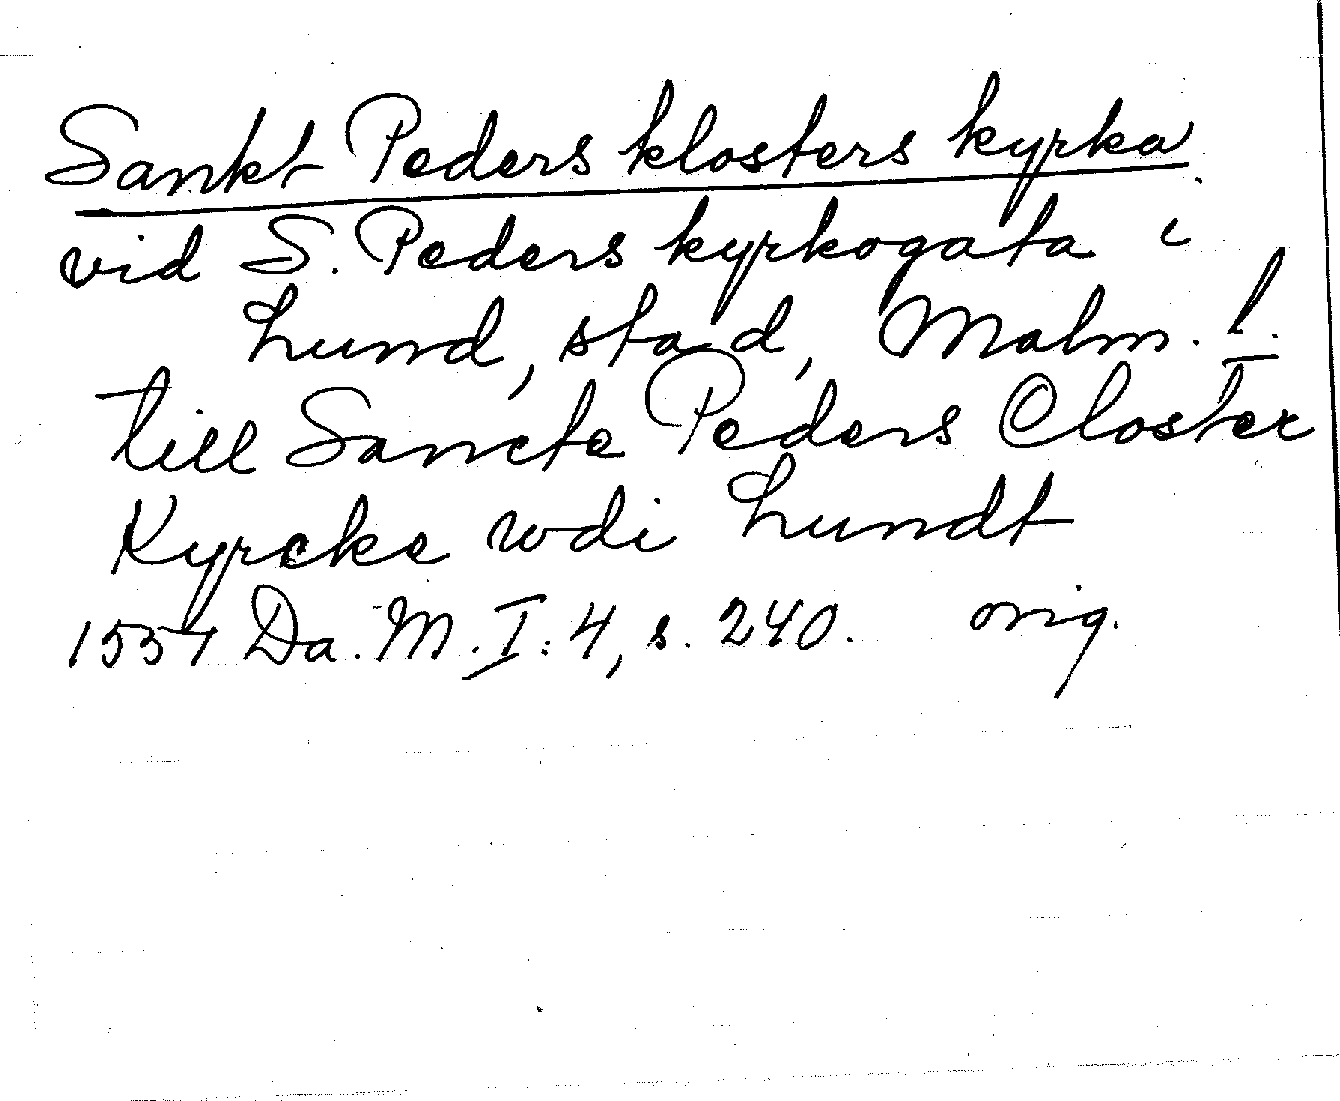 Sankt Peders klosters kyrka
vid S. Peders kyrkogata i
Lund, stad, Malm. l.
till Sancte Peders Closter
Kyrcke wdi Lundt
1557 Da. M. I: 4, s. 240. orig.